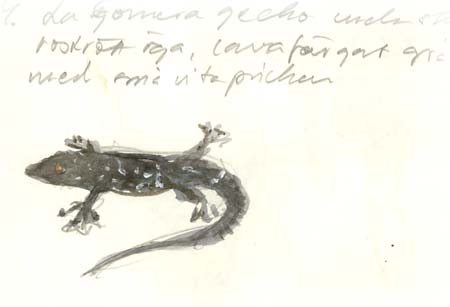 4. La Gomera gecko med
rostrött öga, lavafärgat grå
med små vita prickar